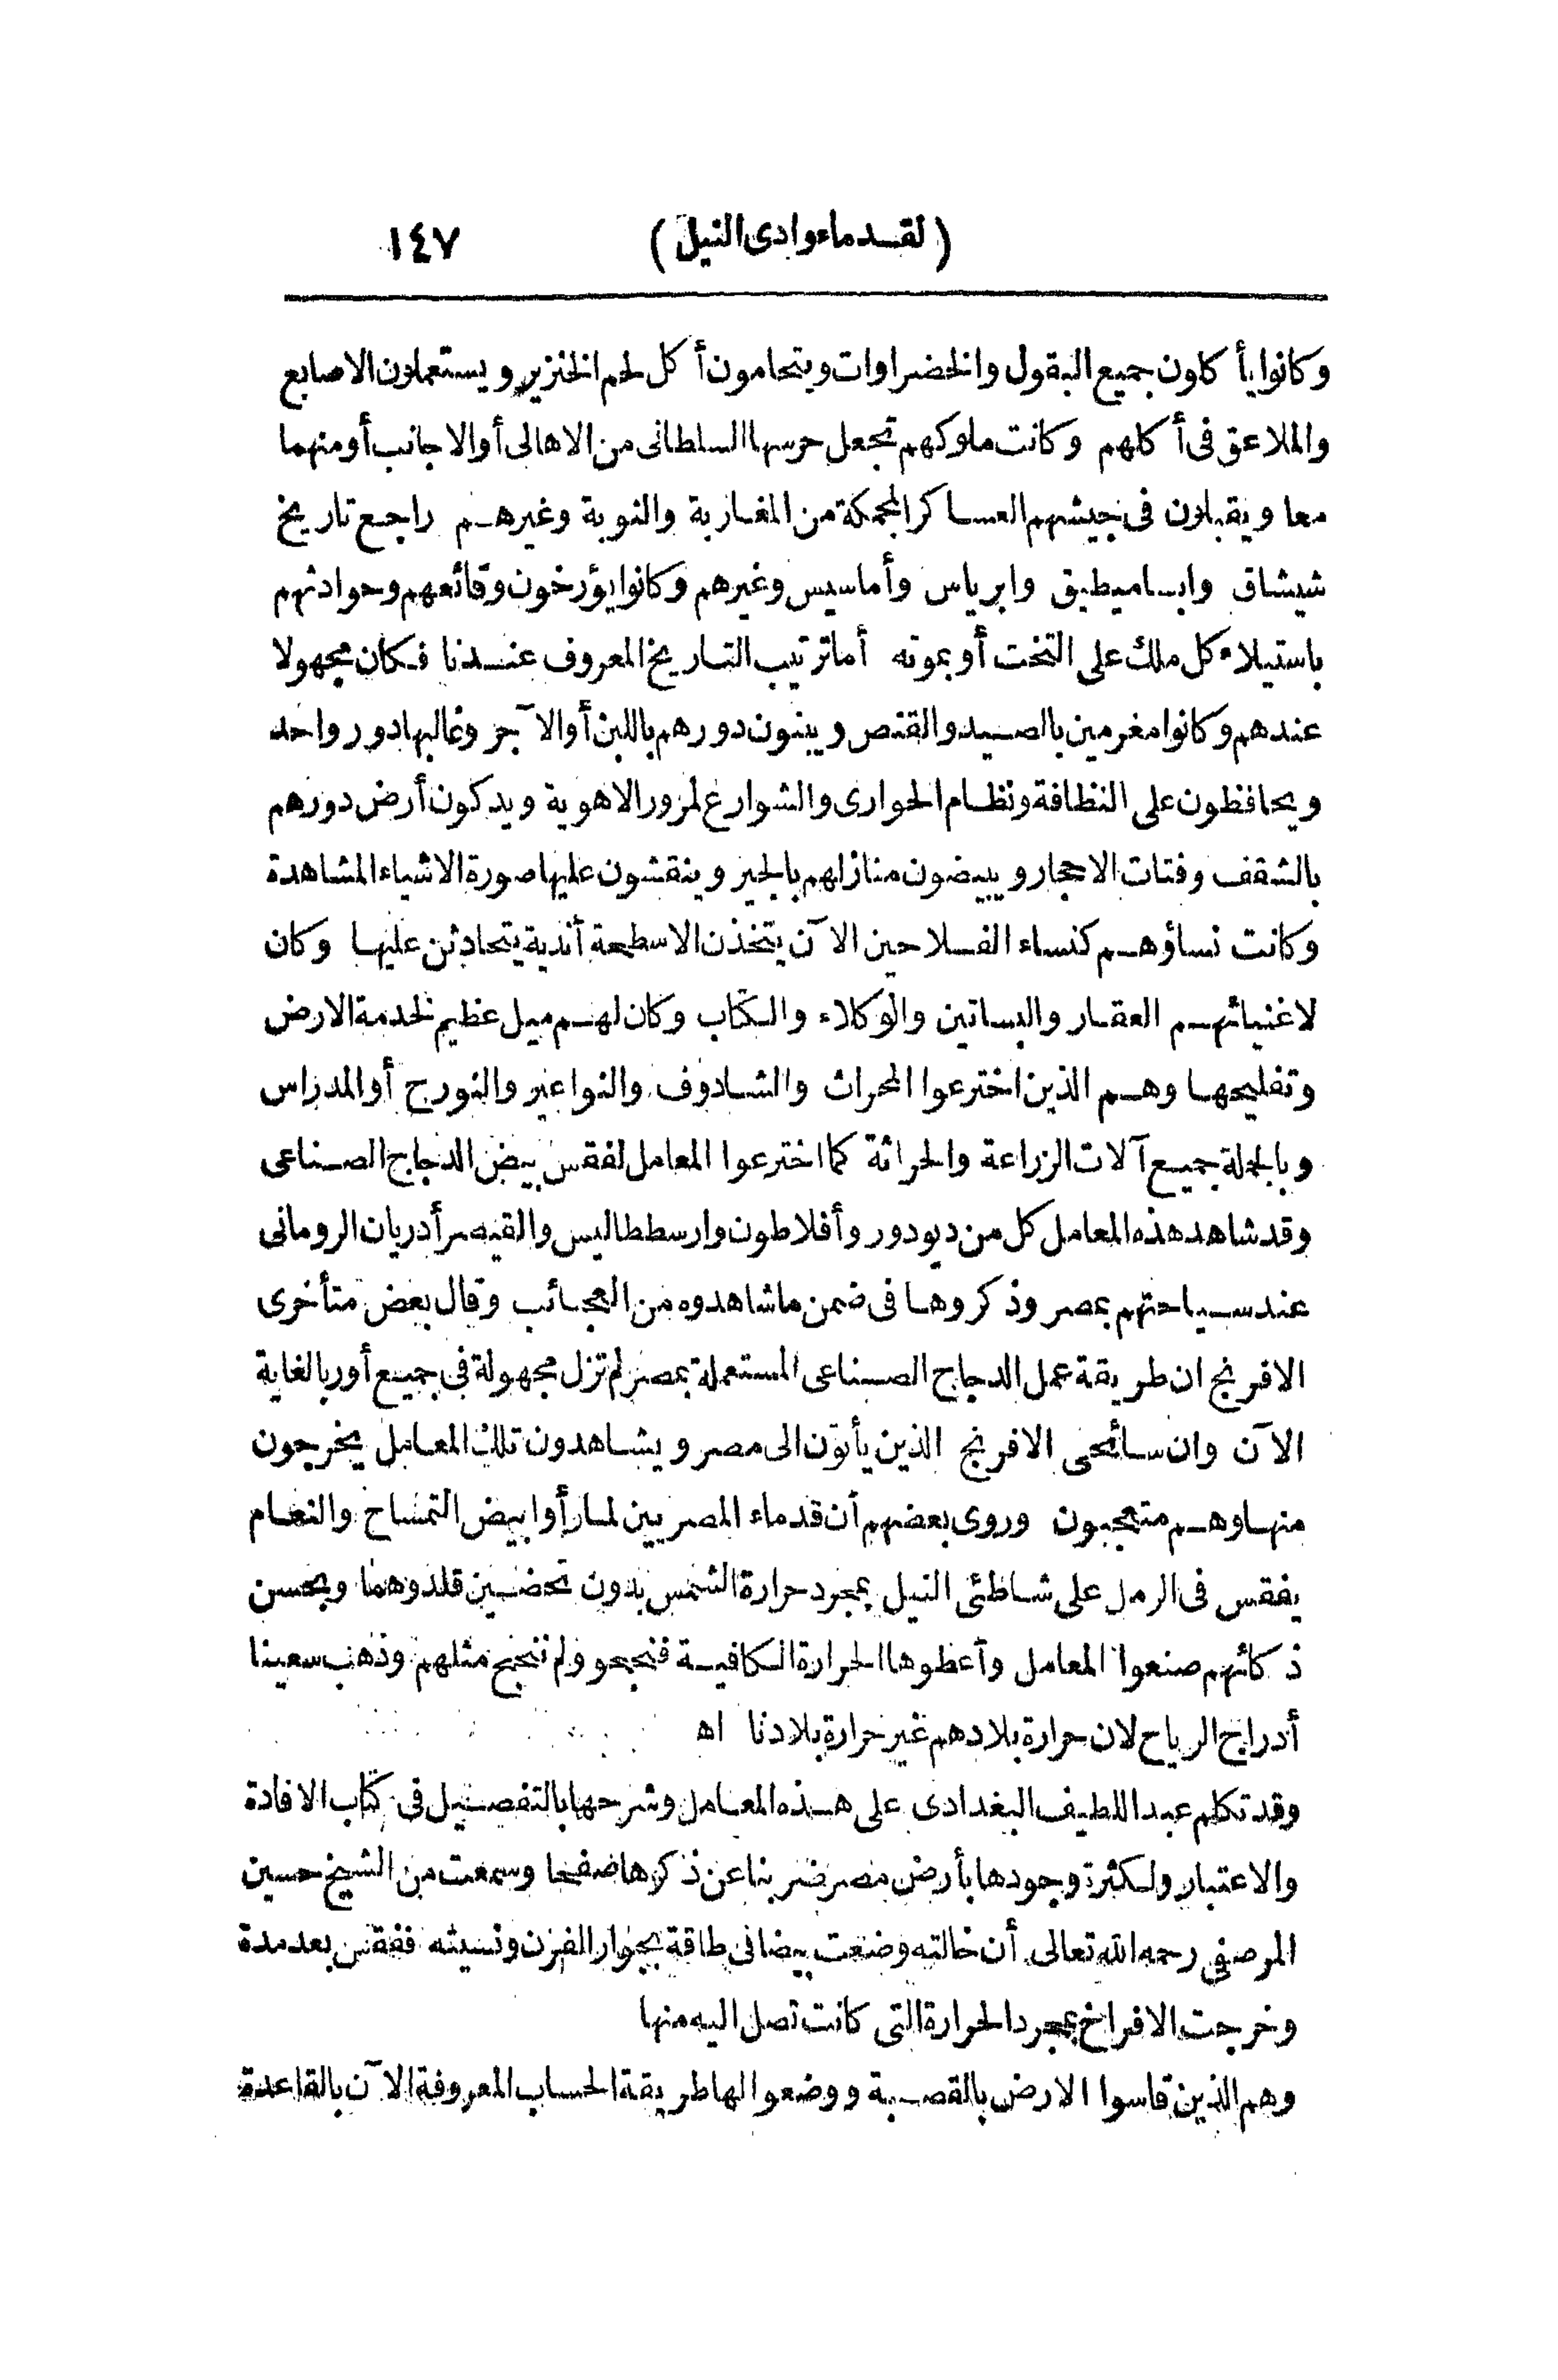 (لقدماء وادى النيل) ١٤٧
وكانوا يأكلون جميع البقول والخضراوات ويتحامون أكل لحم الخنزير ويستعملون الاصابع
والملاعق فى أكلهم وكانت ملوكهم تجعل حرسها السلطانى من الاهالى أو الاجانب أو منهما
معا ويقبلون فى جيشهم العساكر المجمكة من المغاربة والنوبة وغيرهم راجع تاريخ
شيشاق وابساميطيق وابرياس وأماسيس وغيرهم وكانوا يؤرخون وقائعهم وحوادثهم
باستيلاء كل ملك على التخت أو بموته أما ترتيب التاريخ المعروف عندنا فكان مجهولا
عندهم وكانوا مغرمين بالصيد والقنص ويبنون دورهم باللبن أو الآجر وغالبها دور واحد
ويحافظون على النظافة ونظام الحوارى والشوارع لمرور الاهوية ويدكون أرض دورهم
بالشقف وفتات الاحجار ويبيضون منازلهم بالجير وينقشون عليها صورة الاشياء المشاهدة
وكانت نساؤهم كنساء الفلاحين الآن يتخذن الاسطحة أندية يتحادثن عليها وكان
لاغنيائهم العقار والبساتين والوكلاء والكتاب وكان لهم ميل عظيم لخدمة الارض
وتفليحها وهم الذين اخترعوا المحراث والشادوف والنواعير والنورج أو المدراس
وبالجملة جميع آلات الزراعة والحراثة كما اخترعوا المعامل لفقس بيض الدجاج الصناعى
وقد شاهد هذه المعامل كل من ديودور وأفلاطون وارسططاليس والقيصر أدريان الرومانى
عند سياحتهم بمصر وذكروها فى ضمن ما شاهدوه من العجائب وقال بعض متأخرى
الافرنج ان طريقة عمل الدجاج الصناعى المستعملة بمصر لم تزل مجهولة فى جميع أوربا لغاية
الآن وان سائحى الافرنج الذين يأتون الى مصر ويشاهدون تلك المعامل يخرجون
منها وهم متعجبون وروى بعضهم أن قدماء المصريين لما رأوا بيض التمساح والنعام
يفقس فى الرمل على شاطئى النيل بمجرد حرارة الشمس بدون تحضين قلدوهما وبحسن
ذكائهم صنعوا المعامل وأعطوها الحرارة الكافية فنجحو ولم ننجح مثلهم وذهب سعينا
أدراج الرياح لان حرارة بلادهم غير حرارة بلادنا اه
وقد تكلم عبد اللطيف البغدادى على هذه المعامل وشرحها بالتفصيل فى كتاب الافادة
والاعتبار ولكثرة وجودها بأرض مصر ضربنا عن ذكرها صفحا وسمعت من الشيخ حسين
المرصفى رحمه الله تعالى أن خالته وضعت بيضا فى طاقة بجوار الفرن ونسيته ففقس بعد مدة
وخرجت الافراخ بمجرد الحرارة التى كانت تصل اليه منها
وهم الذين قاسوا الارض بالقصبة ووضعوا لها طريقة الحساب المعروفة الآن بالقاعدة